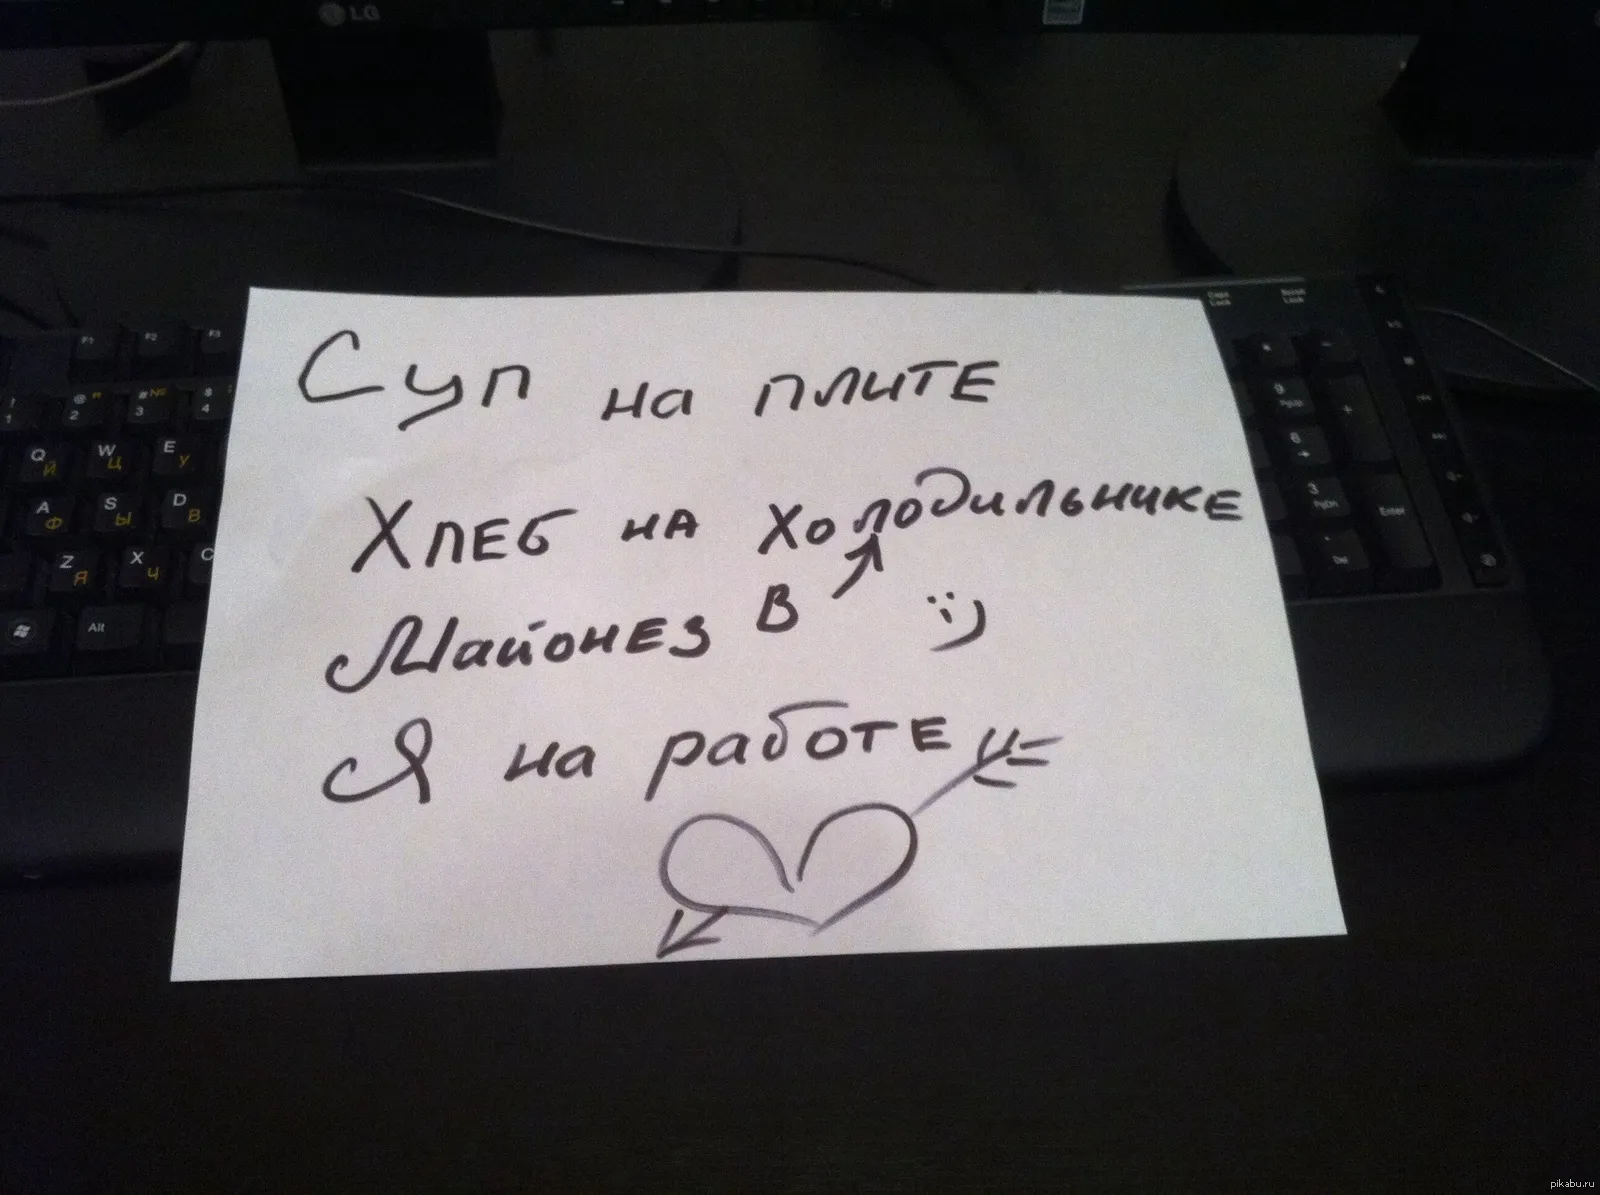 LG
Суп на плите
Хлеб на холодильнике
Майонез в ↗ :)
Я на работе
Caps Lock Scroll Lock
F1 F2 F3
! 1 @ " 2 # № 3 $ ; 4
Q Й W Ц E У
A Ф S Ы D В
Z Я X Ч C
Alt
9 PgUp +
6
3 PgDn Enter
Del
pikabu.ru